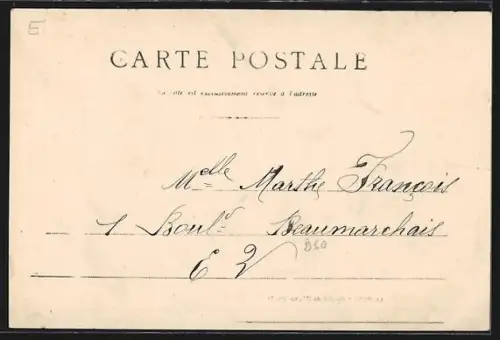 E
CARTE POSTALE
Ce côté est exclusivement réservé à l'adresse
Mdlle Marthe François
1 Bould Beaumarchais
E V